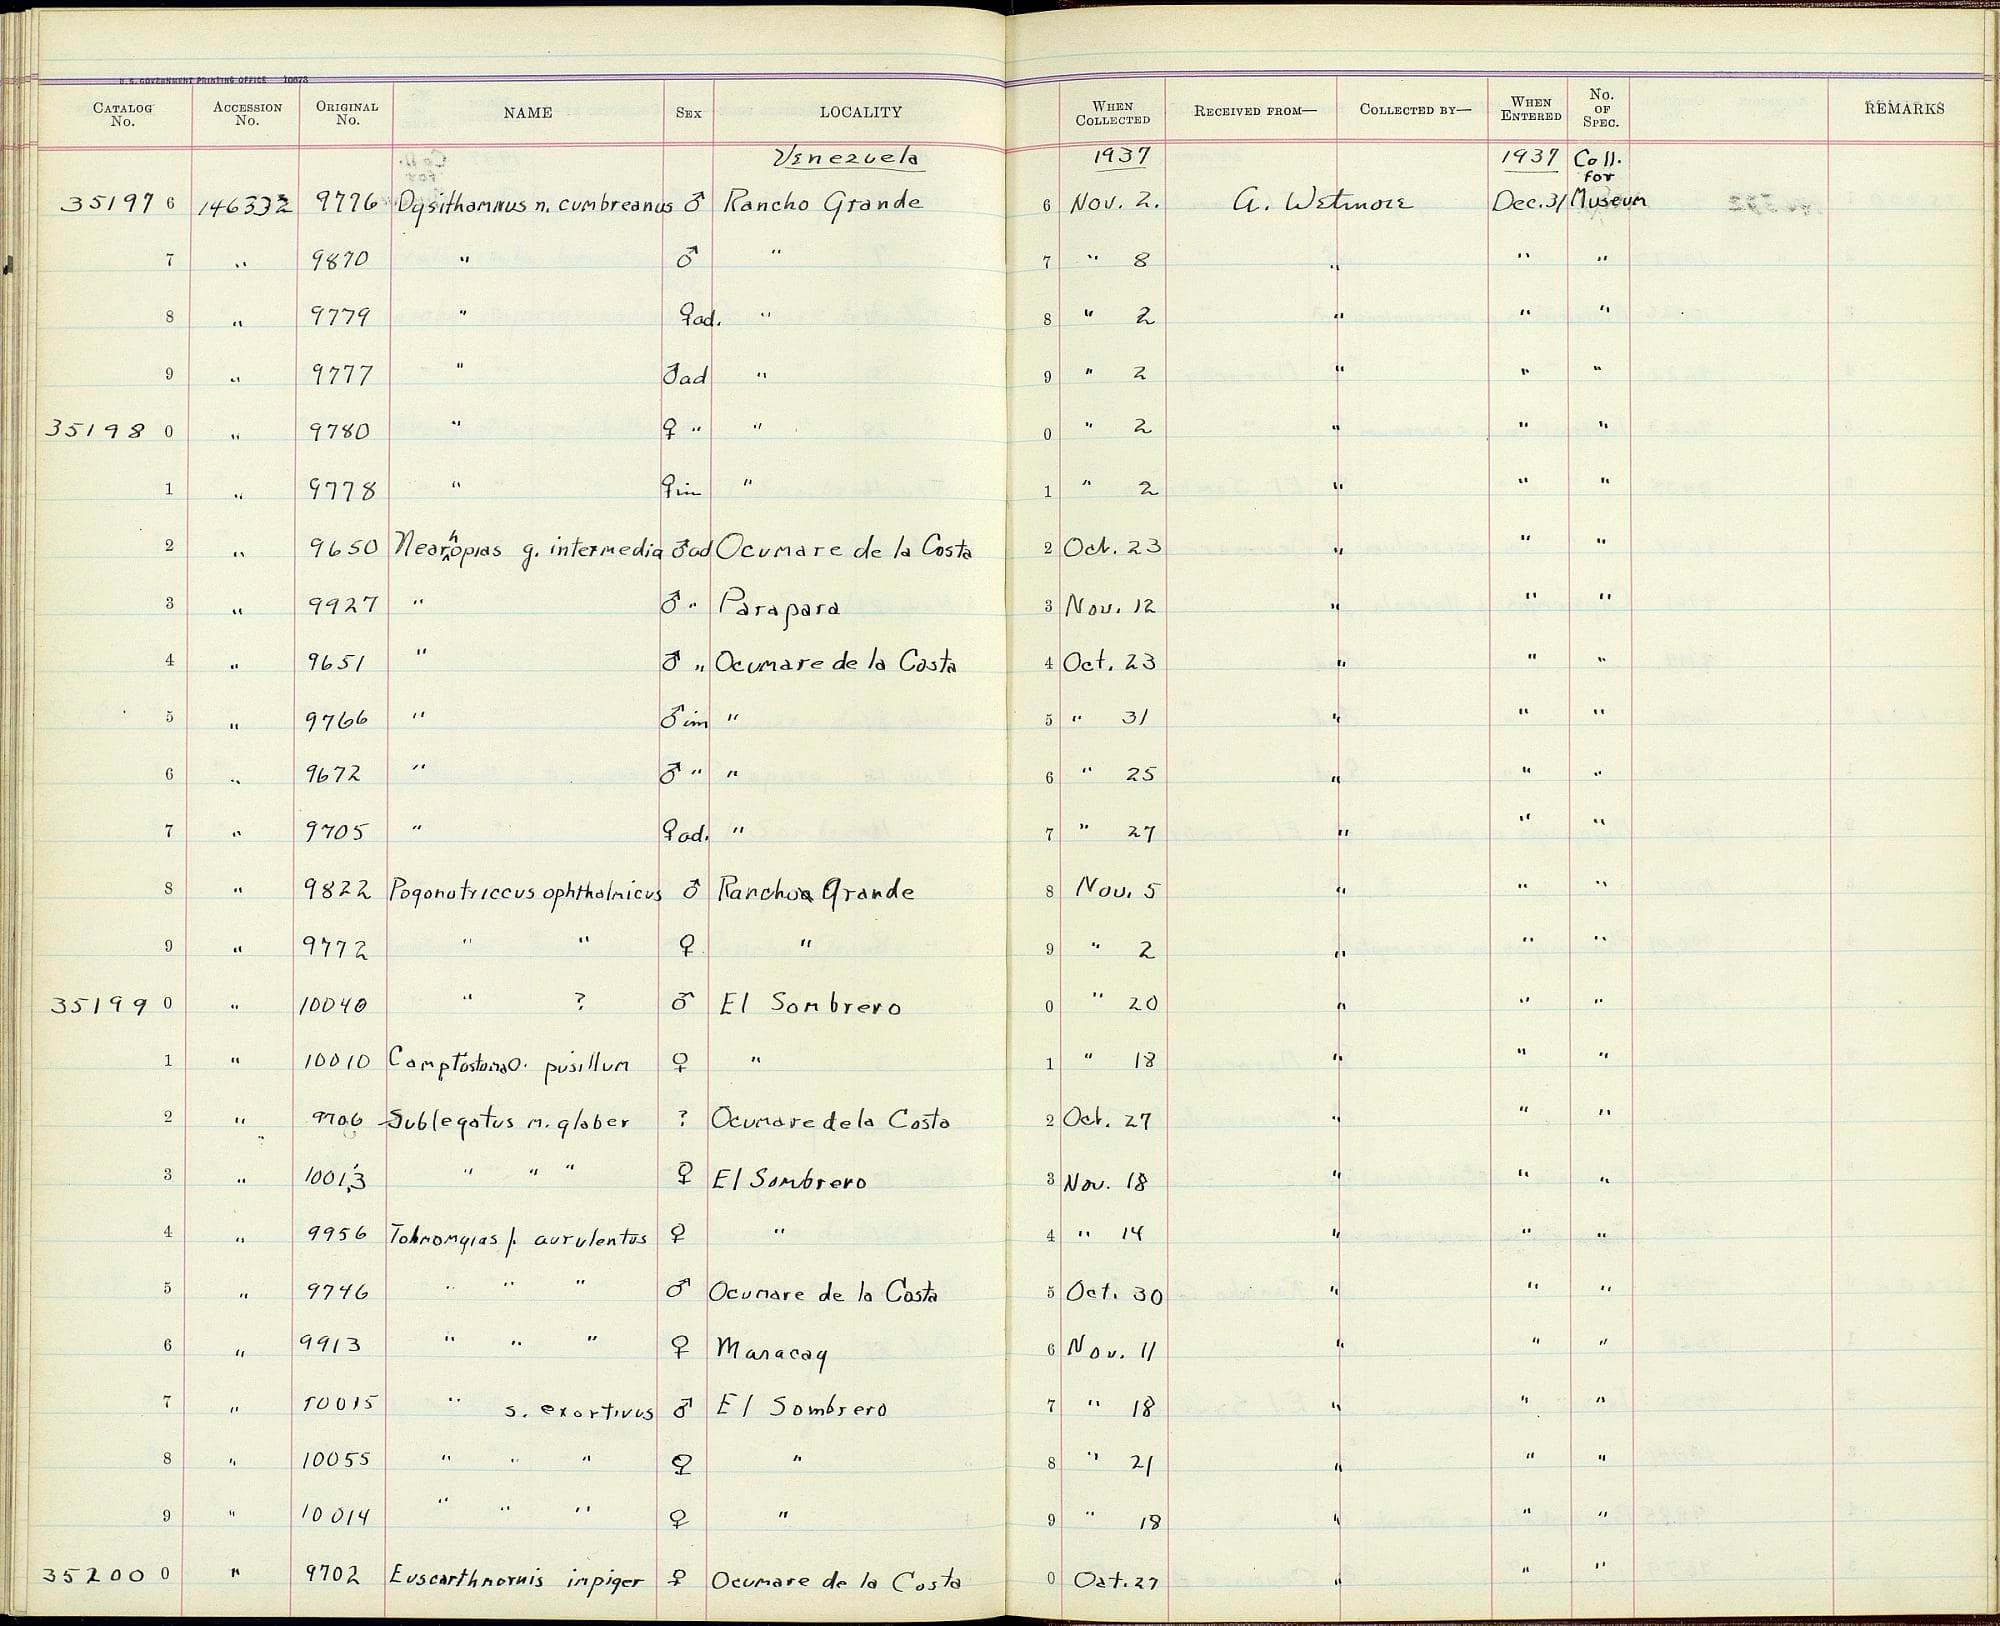 U.S. GOVERNMENT PRINTING OFFICE 10673
CATALOG No. ACCESSION No. ORIGINAL No. NAME SEX LOCALITY WHEN COLLECTED RECEIVED FROM— COLLECTED BY— WHEN ENTERED No. OF SPEC. REMARKS
Venezuela 1937 1937 Coll. for
35197 6 146332 9776 Dysithamnus n. cumbreanus ♂ Rancho Grande 6 Nov. 2. A. Wetmore Dec. 31 Museum
7 " 9870 " ♂ " 7 " 8 " " "
8 " 9779 " ♀ad. " 8 " 2 " " "
9 " 9777 " ♂ad " 9 " 2 " " "
35198 0 " 9780 " ♀ " " 0 " 2 " " "
1 " 9778 " ♀im " 1 " 2 " " "
2 " 9650 Nearhopias g. intermedia ♂ad Ocumare de la Costa 2 Oct. 23 " " "
3 " 9927 " ♂ " Parapara 3 Nov. 12 " " "
4 " 9651 " ♂ " Ocumare de la Costa 4 Oct. 23 " " "
5 " 9766 " ♂im " 5 " 31 " " "
6 " 9672 " ♂ " " 6 " 25 " " "
7 " 9705 " ♀ad. " 7 " 27 " " "
8 " 9822 Pogonotriccus ophthalmicus ♂ Rancho Grande 8 Nov. 5 " " "
9 " 9772 " " ♀ " 9 " 2 " " "
35199 0 " 10040 " ? ♂ El Sombrero 0 " 20 " " "
1 " 10010 Camptostoma o. pusillum ♀ " 1 " 18 " " "
2 " 9706 Sublegatus m. glaber ? Ocumare de la Costa 2 Oct. 27 " " "
3 " 10013 " " " ♀ El Sombrero 3 Nov. 18 " " "
4 " 9956 Tolmomyias f. aurulentus ♀ " 4 " 14 " " "
5 " 9746 " " " ♂ Ocumare de la Costa 5 Oct. 30 " " "
6 " 9913 " " " ♀ Maracay 6 Nov. 11 " " "
7 " 10015 " s. exortivus ♂ El Sombrero 7 " 18 " " "
8 " 10055 " " " ♀ " 8 " 21 " " "
9 " 10014 " " " ♀ " 9 " 18 " " "
35200 0 " 9702 Euscarthmornis impiger ♀ Ocumare de la Costa 0 Oct. 27 " " "